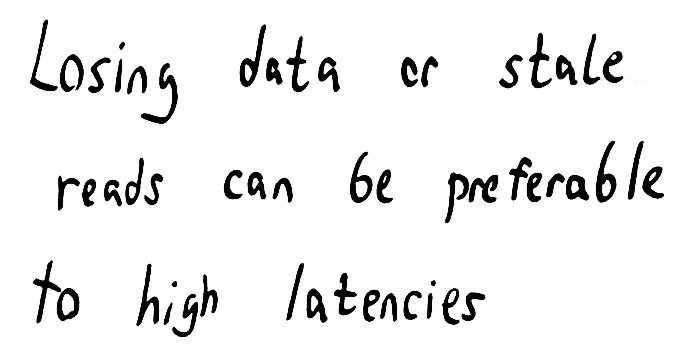 Losing data or stale
reads can be preferable
to high latencies